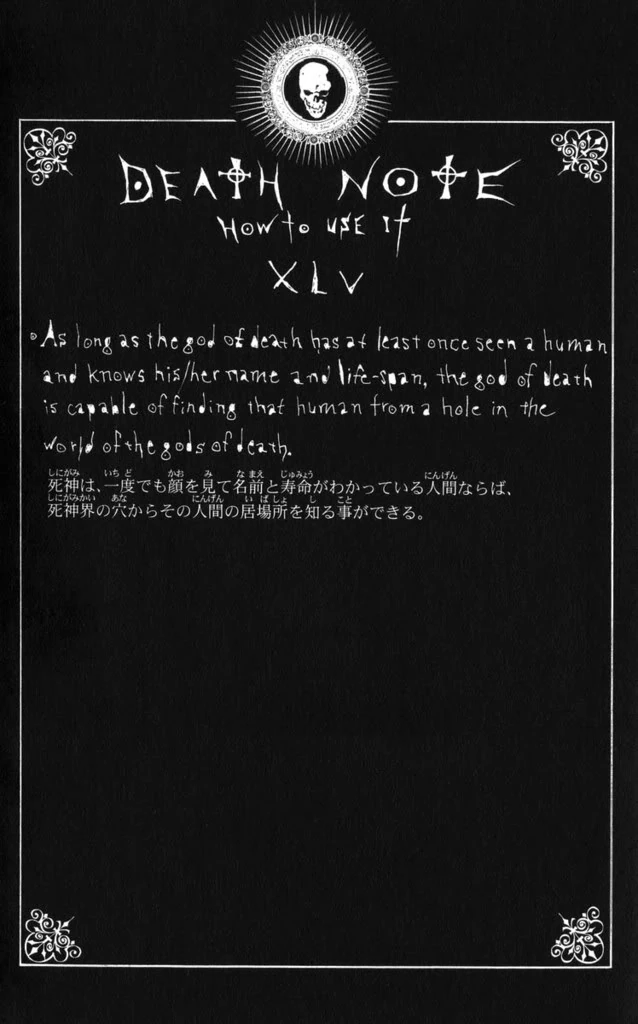 DEATH NOTE
HOW to USE It
XLV
As long as the god of death has at least once seen a human
and knows his/her name and life-span, the god of death
is capable of finding that human from a hole in the
world of the gods of death.
死神は、一度でも顔を見て名前と寿命がわかっている人間ならば、
死神界の穴からその人間の居場所を知る事ができる。